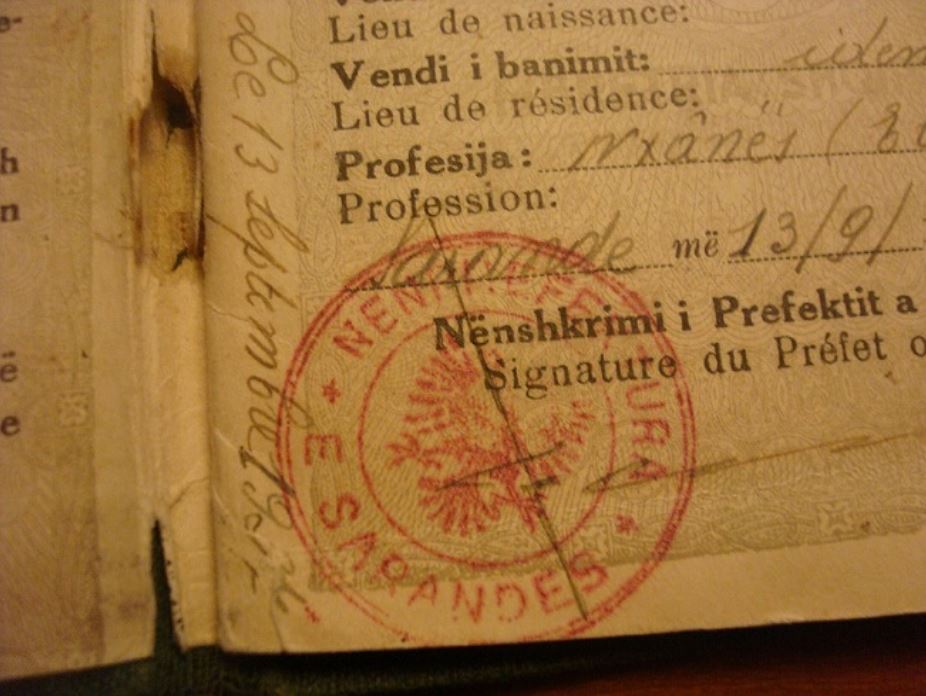 Lieu de naissance:
Vendi i banimit: idem
Lieu de résidence:
Profesija: nxânës
Profession:
Sarande më 13/9/
Nënshkrimi i Prefektit a
Signature du Préfet o
NENPREFEKTURA
E SARANDËS
Le 13 septembre
h
n
ë
e